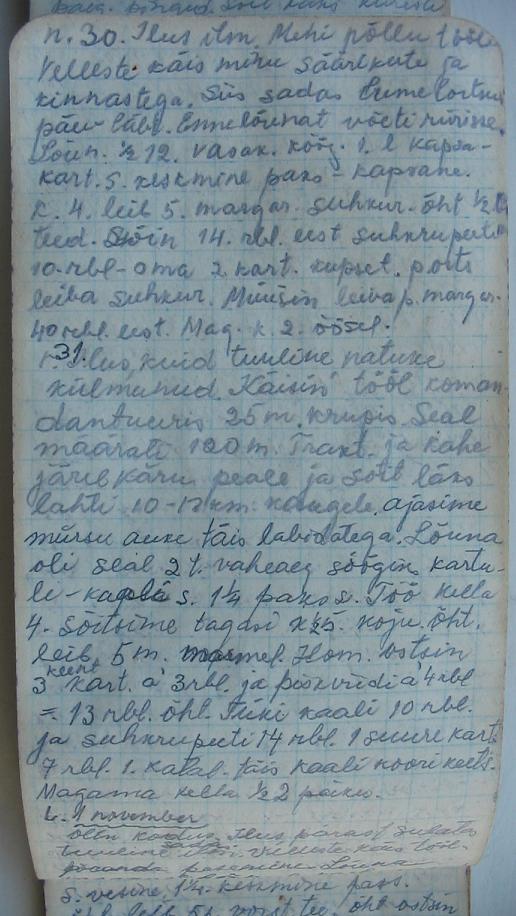 n. 30. Ilus ilm. Mehi põllu tööl
Velleste käis minu säärikute ja
kinnastega. Siis sadas lume lörtsi
päev läbi. Ennelõunat võeti
Lõun. ½ 12. vasak. köög. 1. l kapsa-
kart. s. keskmine paks - kapsane.
K. 4. leib 5. margar. suhkur. õht ½
teed. Sõin 14. rbl. eest suhkrupeeti
10 rbl - oma 2 kart. küpset. potis
leiba suhkur. Müüsin leiva p. margar.
40 rbl. eest. Mag. k. 2. öösel.
r. 31. Ilus, kuid tuuline natuke
külmanud. Käisin tööl koman-
dantuuris 25 m. krupis. Seal
määrati 120 m. Trakt. ja kahe
järelkäru peale ja sõit läks
lahti 10-12 km. kaugele. ajasime
mürsu auke täis labidatega. Lõuna
oli seal 2 t. vaheaeg söögin kartu-
li-kapsa s. 1¼ paks s. Töö kella
4. Sõitsime tagasi k ½5. koju. õht.
leib 5 m. Hom. ostsin
3 keent kart. á 3 rbl. ja piskviidi á 4 rbl
= 13 rbl. õhl. Tüki kaali 10 rbl.
ja suhkrupeeti 14 rbl. 1 suure kart.
7 rbl. 1. katel. täis kaali koori keets.
Magama kella ½ 2 paiku.
L. 1 november
Olin kodus. Ilus pärast sulatas
tuuline ilm. Velleste käis tööl
Lõuna
s. vesine 1¼. keskmine paks.